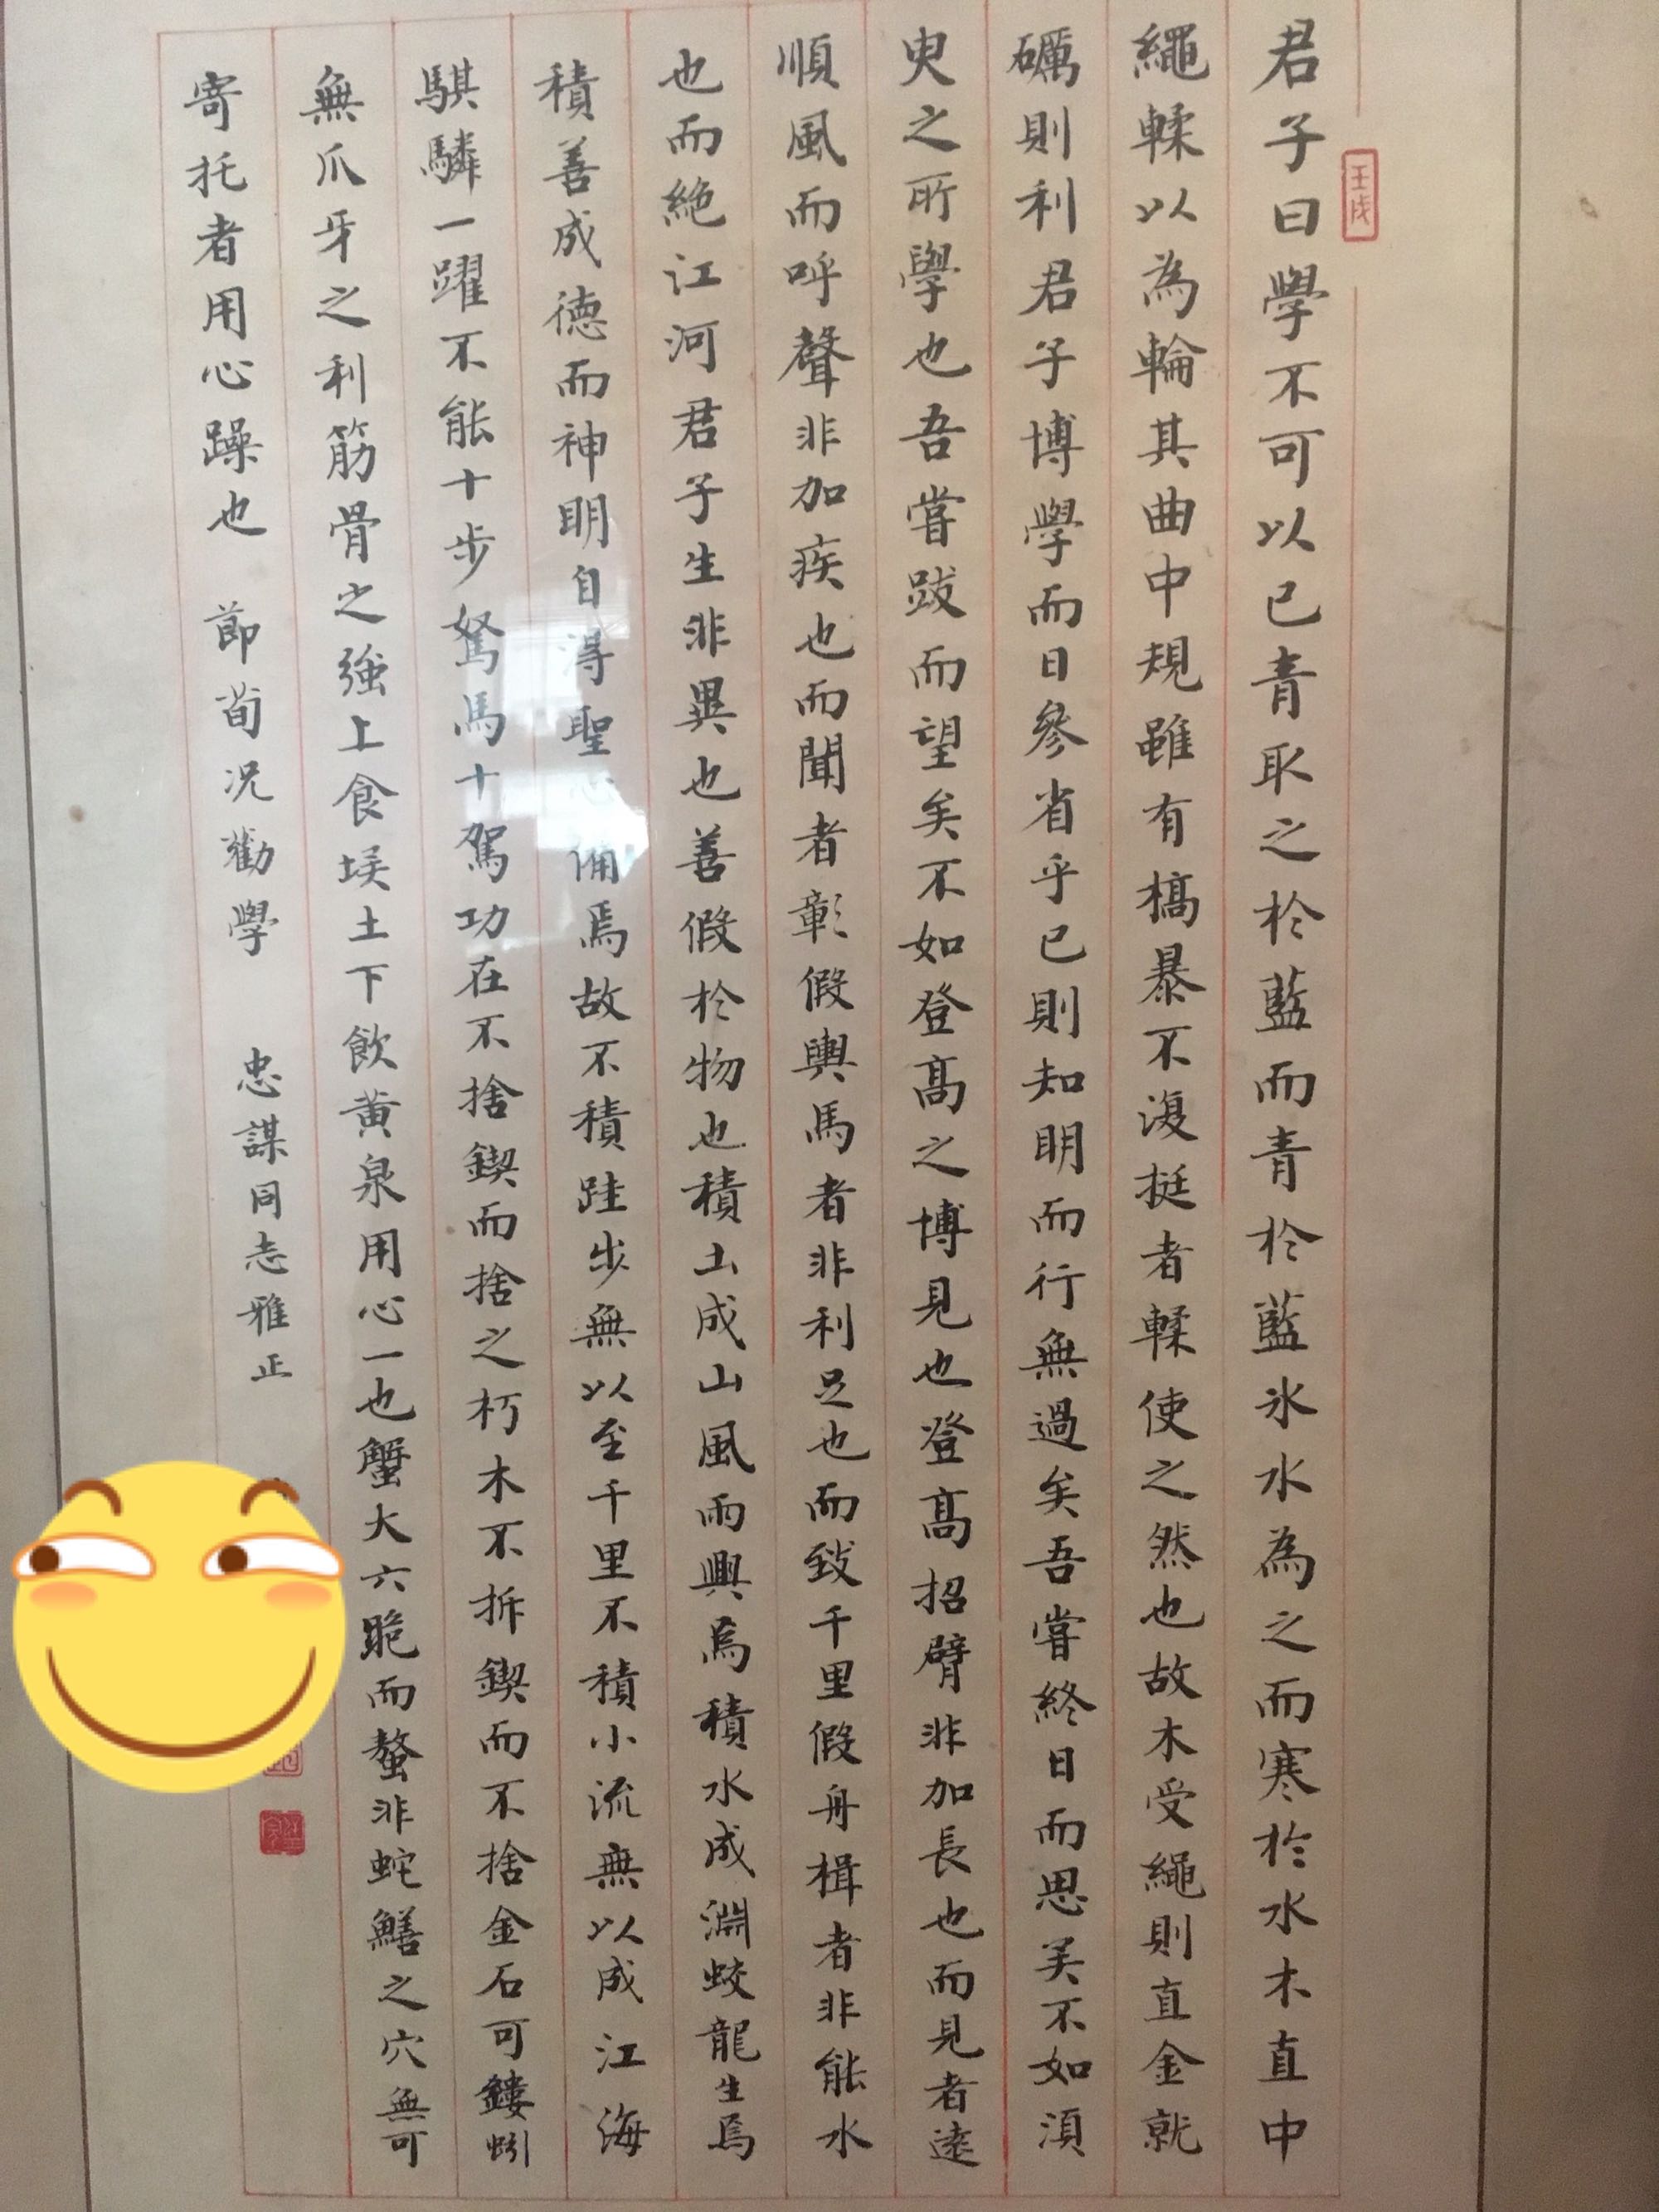 壬戌
君子曰學不可以已青取之於藍而青於藍冰水為之而寒於水木直中
繩輮以為輪其曲中規雖有槁暴不復挺者輮使之然也故木受繩則直金就
礪則利君子博學而日參省乎已則知明而行無過矣吾嘗終日而思矣不如須
臾之所學也吾嘗跂而望矣不如登高之博見也登高招臂非加長也而見者遠
順風而呼聲非加疾也而聞者彰假輿馬者非利足也而致千里假舟楫者非能水
也而絶江河君子生非異也善假於物也積土成山風雨興焉積水成淵蛟龍生焉
積善成德而神明自得聖心備焉故不積跬步無以至千里不積小流無以成江海
騏驎一躍不能十步駑馬十駕功在不捨鍥而捨之朽木不折鍥而不捨金石可鏤蚓
無爪牙之利筋骨之強上食埃土下飲黃泉用心一也蟹大六跪而螯非蛇鱔之穴無可
寄托者用心躁也 節荀况勸學 忠謀同志雅正